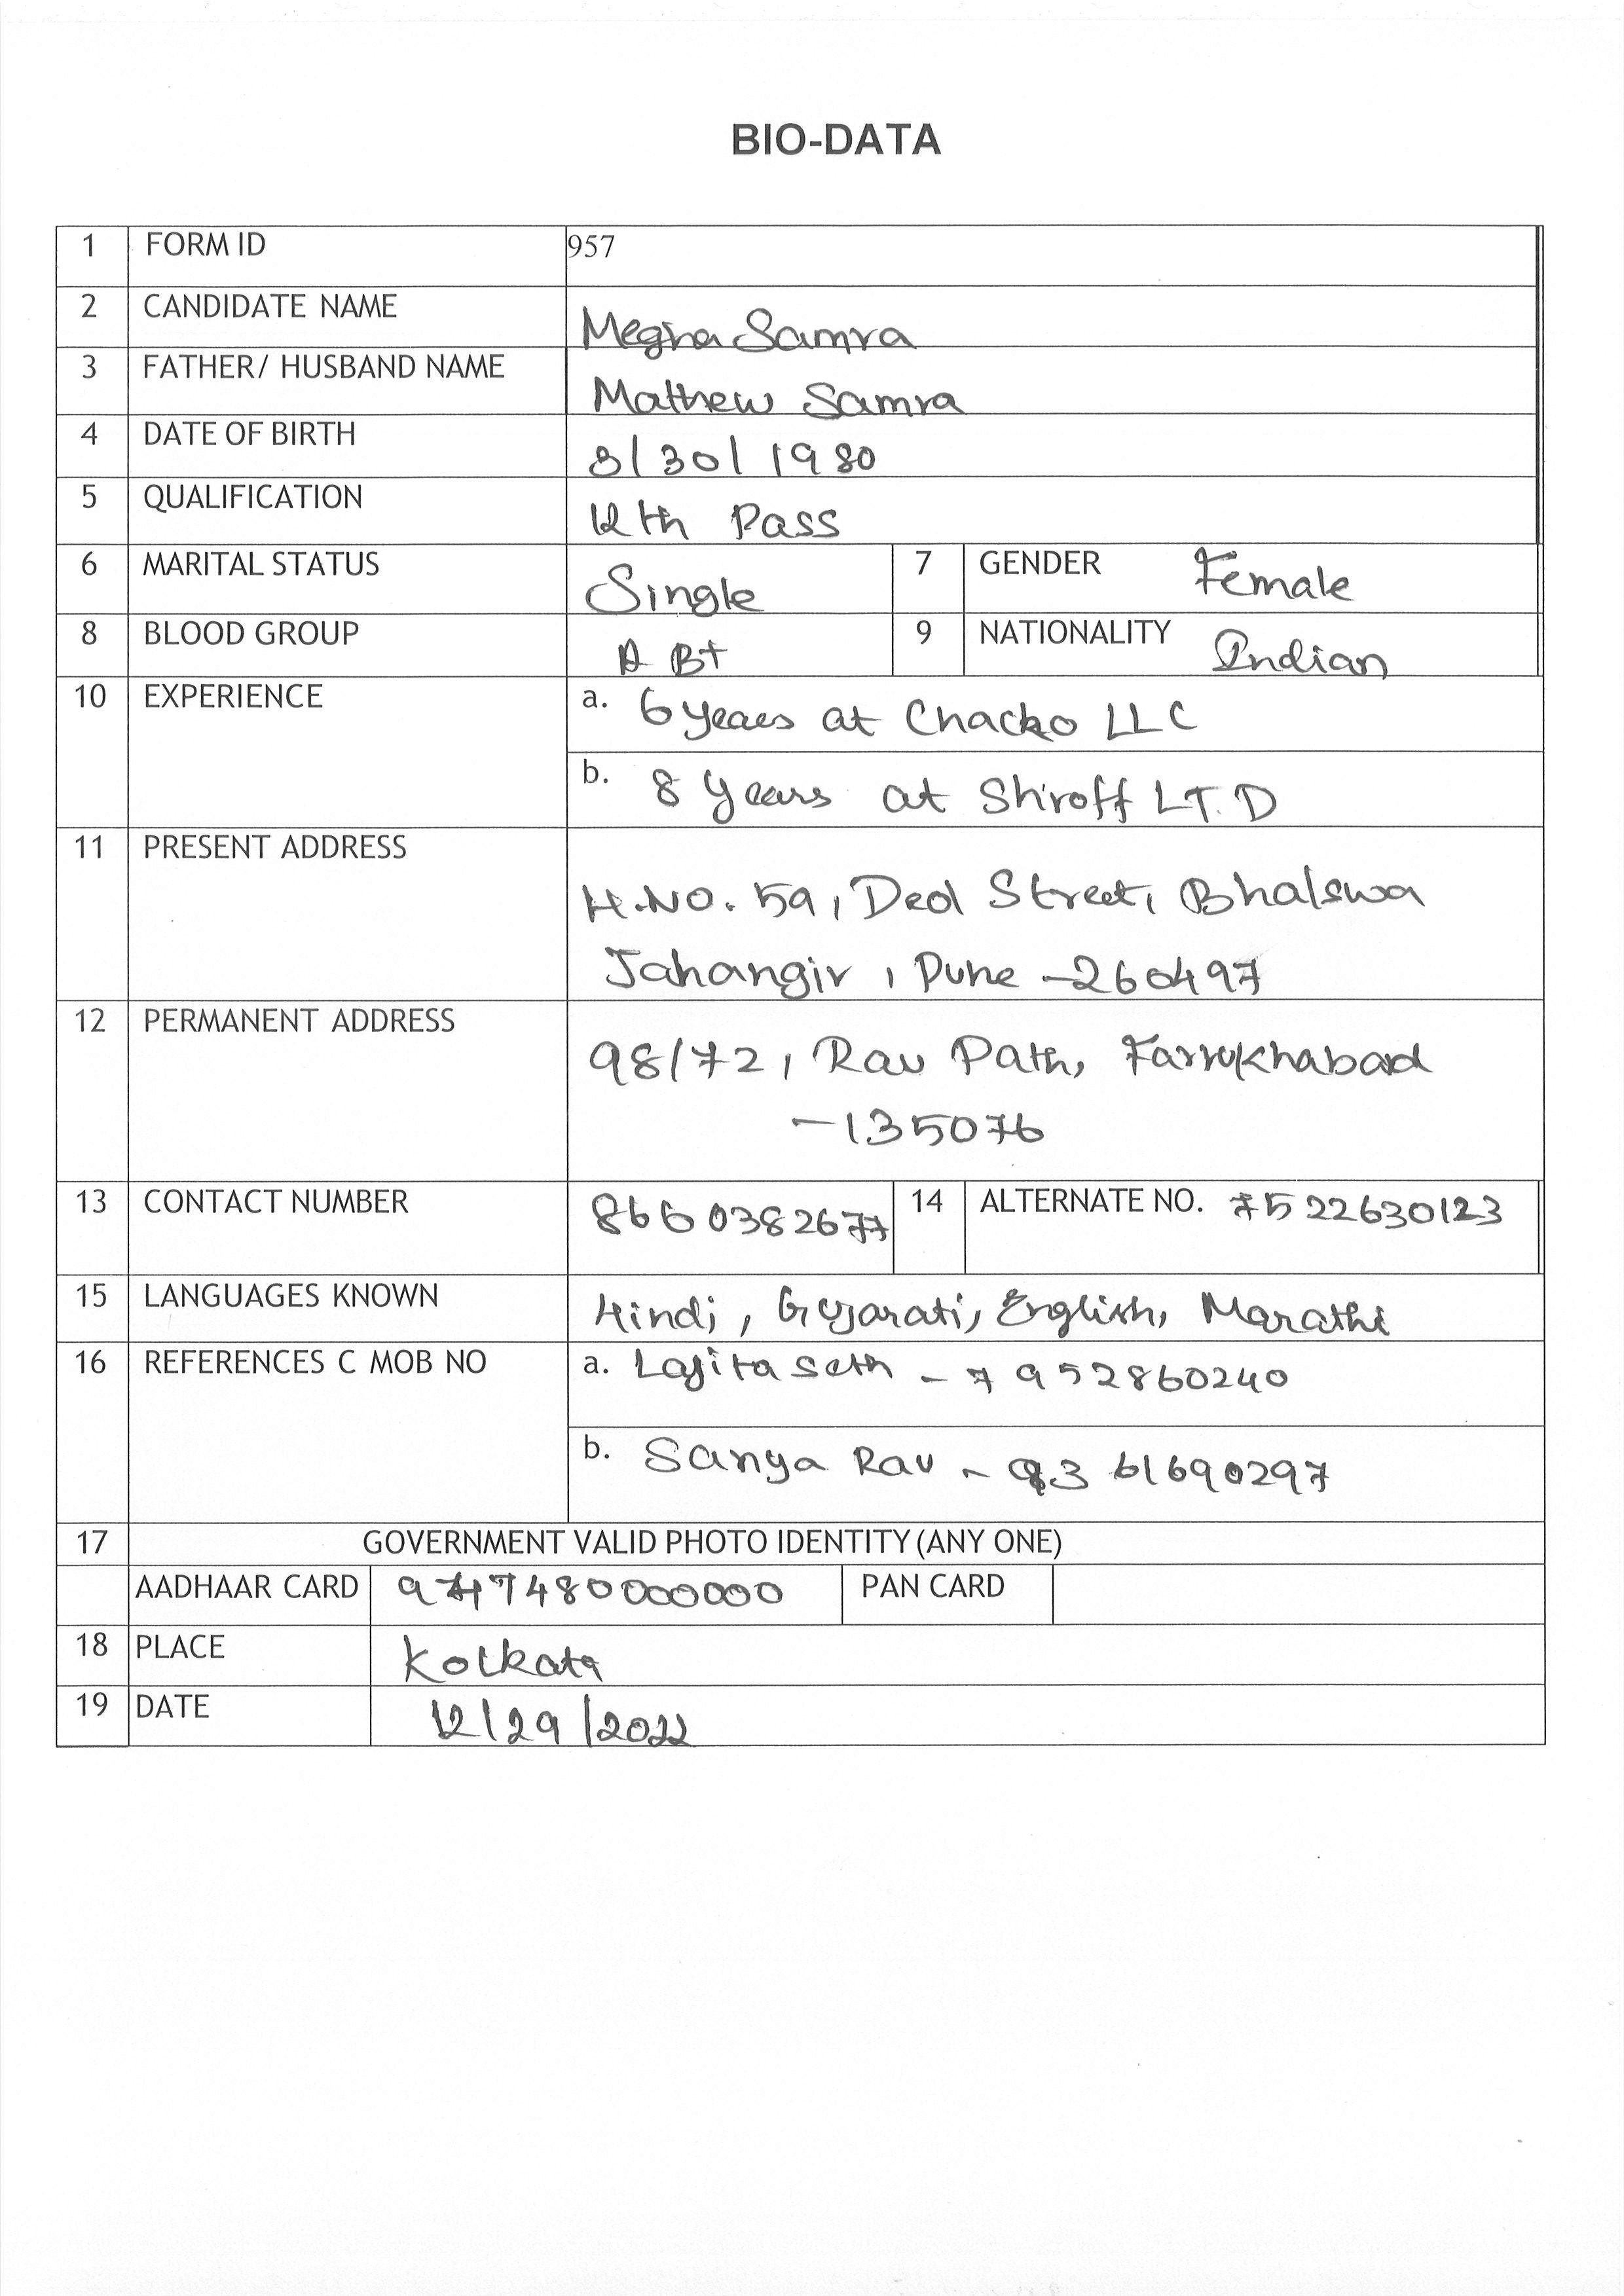 BIO-DATA
1 FORM ID 957
2 CANDIDATE NAME Megna Samra
3 FATHER/ HUSBAND NAME Mathew Samra
4 DATE OF BIRTH 8/30/1980
5 QUALIFICATION 12th Pass
6 MARITAL STATUS Single 7 GENDER Female
8 BLOOD GROUP AB+ 9 NATIONALITY Indian
10 EXPERIENCE a. 6 years at Chacko LLC
b. 8 years at Shroff LT.D
11 PRESENT ADDRESS
H.NO. 59, Deol Street, Bhalswa
Jahangir, Pune -260497
12 PERMANENT ADDRESS
98/72, Rau Path, Farrukhabad
-135076
13 CONTACT NUMBER 8660382677 14 ALTERNATE NO. 7522630123
15 LANGUAGES KNOWN Hindi, Gujarati, English, Marathi
16 REFERENCES C MOB NO a. Lajita Seth - 7952860240
b. Sanya Rau - 9361690297
17 GOVERNMENT VALID PHOTO IDENTITY (ANY ONE)
AADHAAR CARD PAN CARD
18 PLACE Kolkata
19 DATE 12/29/2022